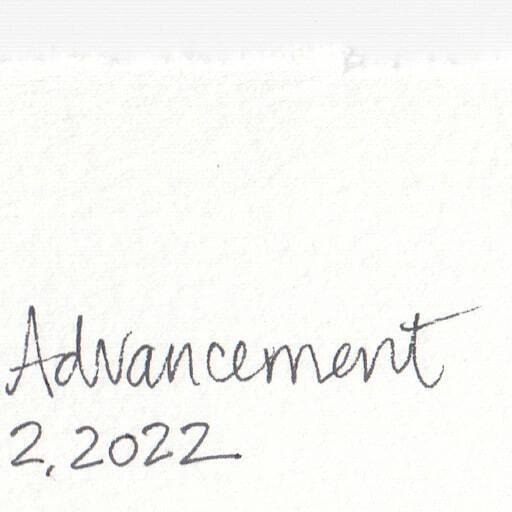 Advancement
2, 2022